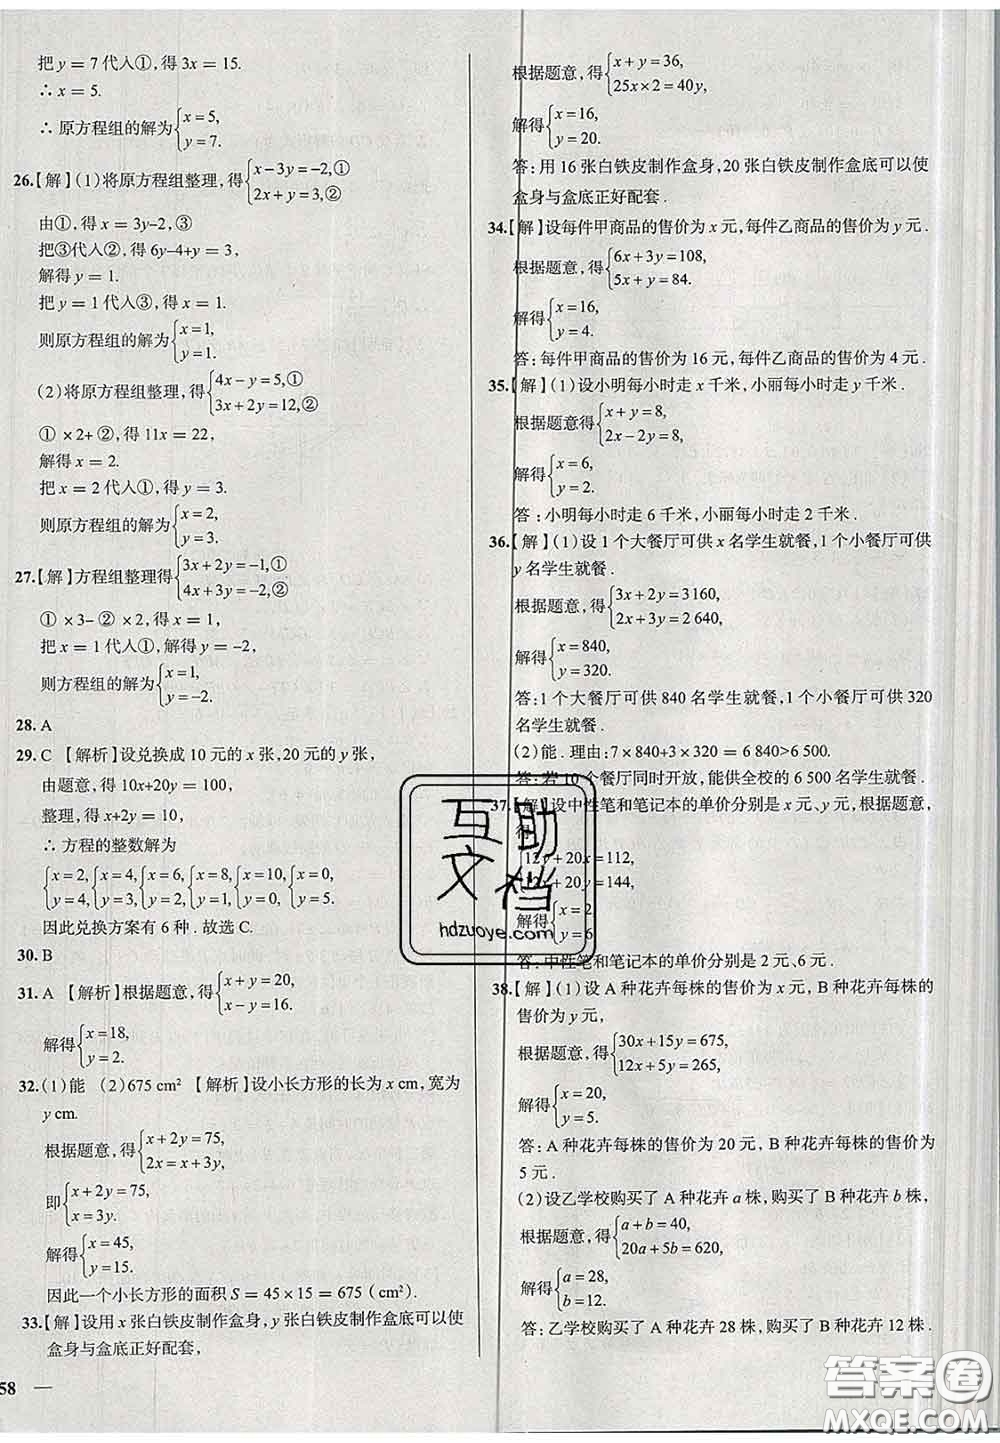 把 y = 7 代入①,得 3x = 15.
∴ x = 5.
∴ 原方程组的解为{x = 5, y = 7.
26.【解】(1)将原方程组整理,得{x-3y = -2,① 2x + y = 3,②
由①,得 x = 3y-2,③
把③代入②,得 6y-4+y = 3,
解得 y = 1.
把 y = 1 代入③,得 x = 1.
则原方程组的解为{x = 1, y = 1.
(2)将原方程组整理,得{4x - y = 5,① 3x + 2y = 12,②
① ×2+ ②,得 11x = 22,
解得 x = 2.
把 x = 2 代入①,得 y = 3.
则原方程组的解为{x = 2, y = 3.
27.【解】方程组整理得{3x + 2y = -1,① 4x + 3y = -2,②
① ×3- ② ×2,得 x = 1,
把 x = 1 代入①,解得 y = -2,
则方程组的解为{x = 1, y = -2.
28. A
29. C 【解析】设兑换成 10 元的 x 张,20 元的 y 张,
由题意,得 10x+20y = 100,
整理,得 x+2y = 10,
∴ 方程的整数解为
{x = 2, y = 4, {x = 4, y = 3, {x = 6, y = 2, {x = 8, y = 1, {x = 10, y = 0, {x = 0, y = 5.
因此兑换方案有 6 种 . 故选 C.
30. B
31. A 【解析】根据题意,得{x + y = 20, x - y = 16.
解得{x = 18, y = 2.
32. (1)能 (2)675 cm² 【解析】设小长方形的长为 x cm,宽为
y cm.
根据题意,得{x + 2y = 75, 2x = x + 3y,
即{x + 2y = 75, x = 3y.
解得{x = 45, y = 15.
因此一个小长方形的面积 S = 45 × 15 = 675 ( cm²).
33.【解】设用 x 张白铁皮制作盒身,y 张白铁皮制作盒底可以使
盒身与盒底正好配套,
58
根据题意,得{x + y = 36, 25x × 2 = 40y,
解得{x = 16, y = 20.
答:用 16 张白铁皮制作盒身,20 张白铁皮制作盒底可以使
盒身与盒底正好配套 .
34.【解】设每件甲商品的售价为 x 元,每件乙商品的售价为 y 元 .
根据题意,得{6x + 3y = 108, 5x + y = 84.
解得{x = 16, y = 4.
答:每件甲商品的售价为 16 元,每件乙商品的售价为 4 元 .
35.【解】(1)设小明每小时走 x 千米,小丽每小时走 y 千米 .
根据题意得{x + y = 8, 2x - 2y = 8,
解得{x = 6, y = 2.
答:小明每小时走 6 千米,小丽每小时走 2 千米 .
36.【解】(1)设 1 个大餐厅可供 x 名学生就餐,1 个小餐厅可供
y 名学生就餐.
根据题意,得{3x + 2y = 3 160, 2x + 3y = 2 640,
解得{x = 840, y = 320.
答:1 个大餐厅可供 840 名学生就餐,1 个小餐厅可供 320
名学生就餐.
(2)能 . 理由:7 × 840+3 × 320 = 6 840>6 500.
答:若 10 个餐厅同时开放,能供全校的 6 500 名学生就餐.
37.【解】设中性笔和笔记本的单价分别是 x 元、y 元,根据题意,
得
{12y + 20x = 112, 12x + 20y = 144,
解得{x = 2 y = 6
答:中性笔和笔记本的单价分别是 2 元、6 元 .
38.【解】(1)设 A 种花卉每株的售价为 x 元, B 种花卉每株的
售价为 y 元,
根据题意,得{30x + 15y = 675, 12x + 5y = 265,
解得{x = 20, y = 5.
答:A 种花卉每株的售价为 20 元, B 种花卉每株的售价为
5 元 .
(2)设乙学校购买了 A 种花卉 a 株,购买了 B 种花卉 b 株,
根据题意,得{a + b = 40, 20a + 5b = 620,
解得{a = 28, b = 12.
答:乙学校购买了 A 种花卉 28 株,购买了 B 种花卉 12 株 .
互助
文档
hdzuoye.com
答案圈
MXQE.COM